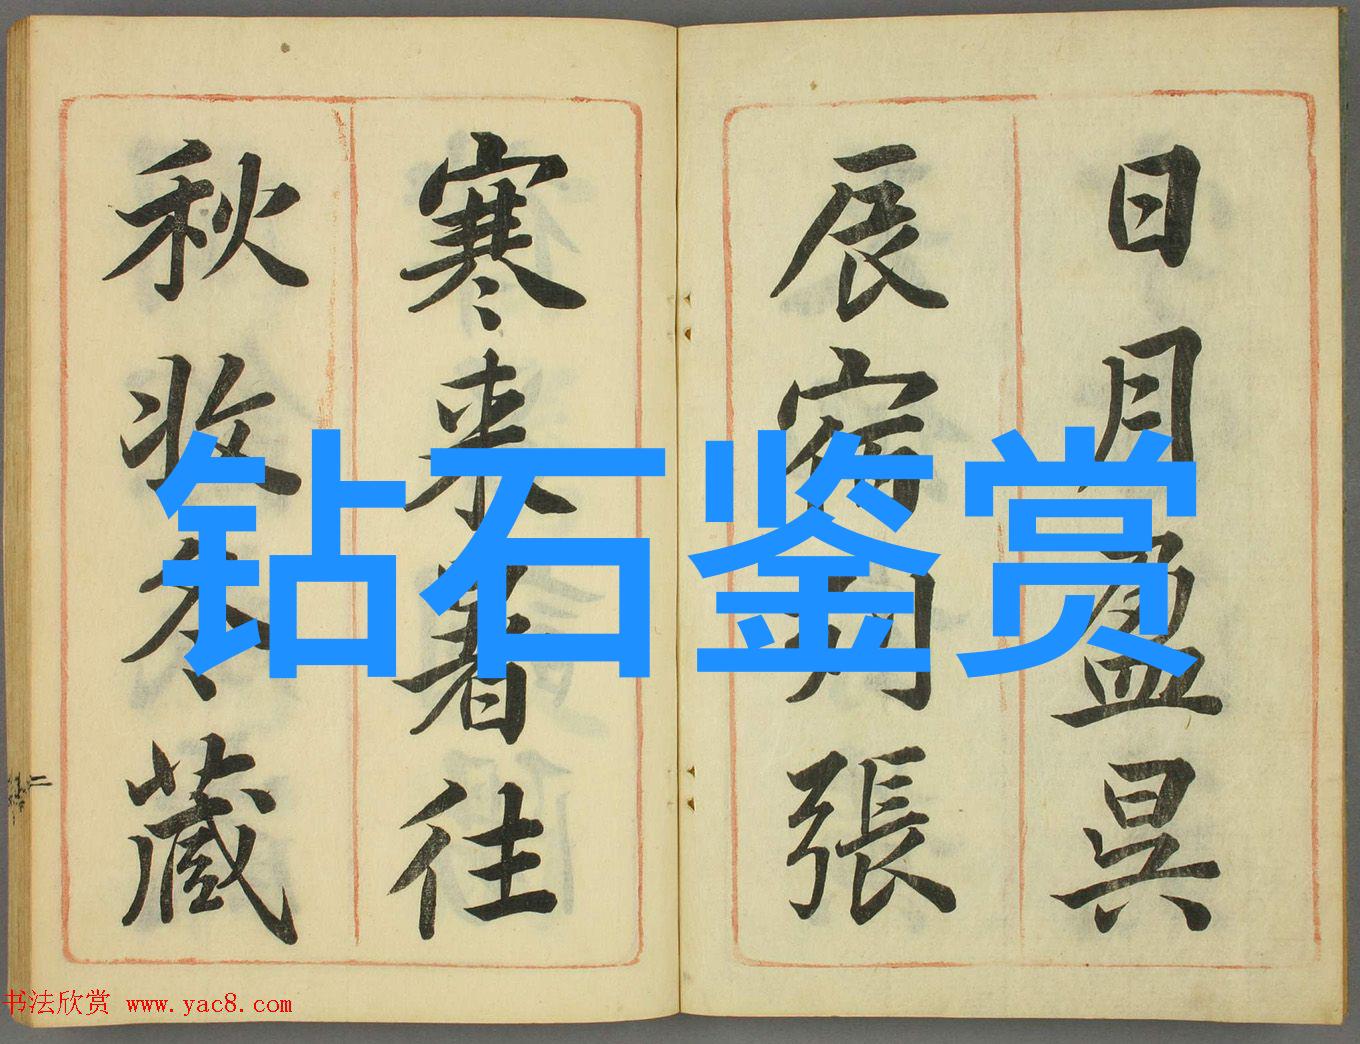 日月盈昃
辰宿列張
寒来暑往
秋收冬藏
钻石鉴赏
二
书法欣赏 www.yac8.com